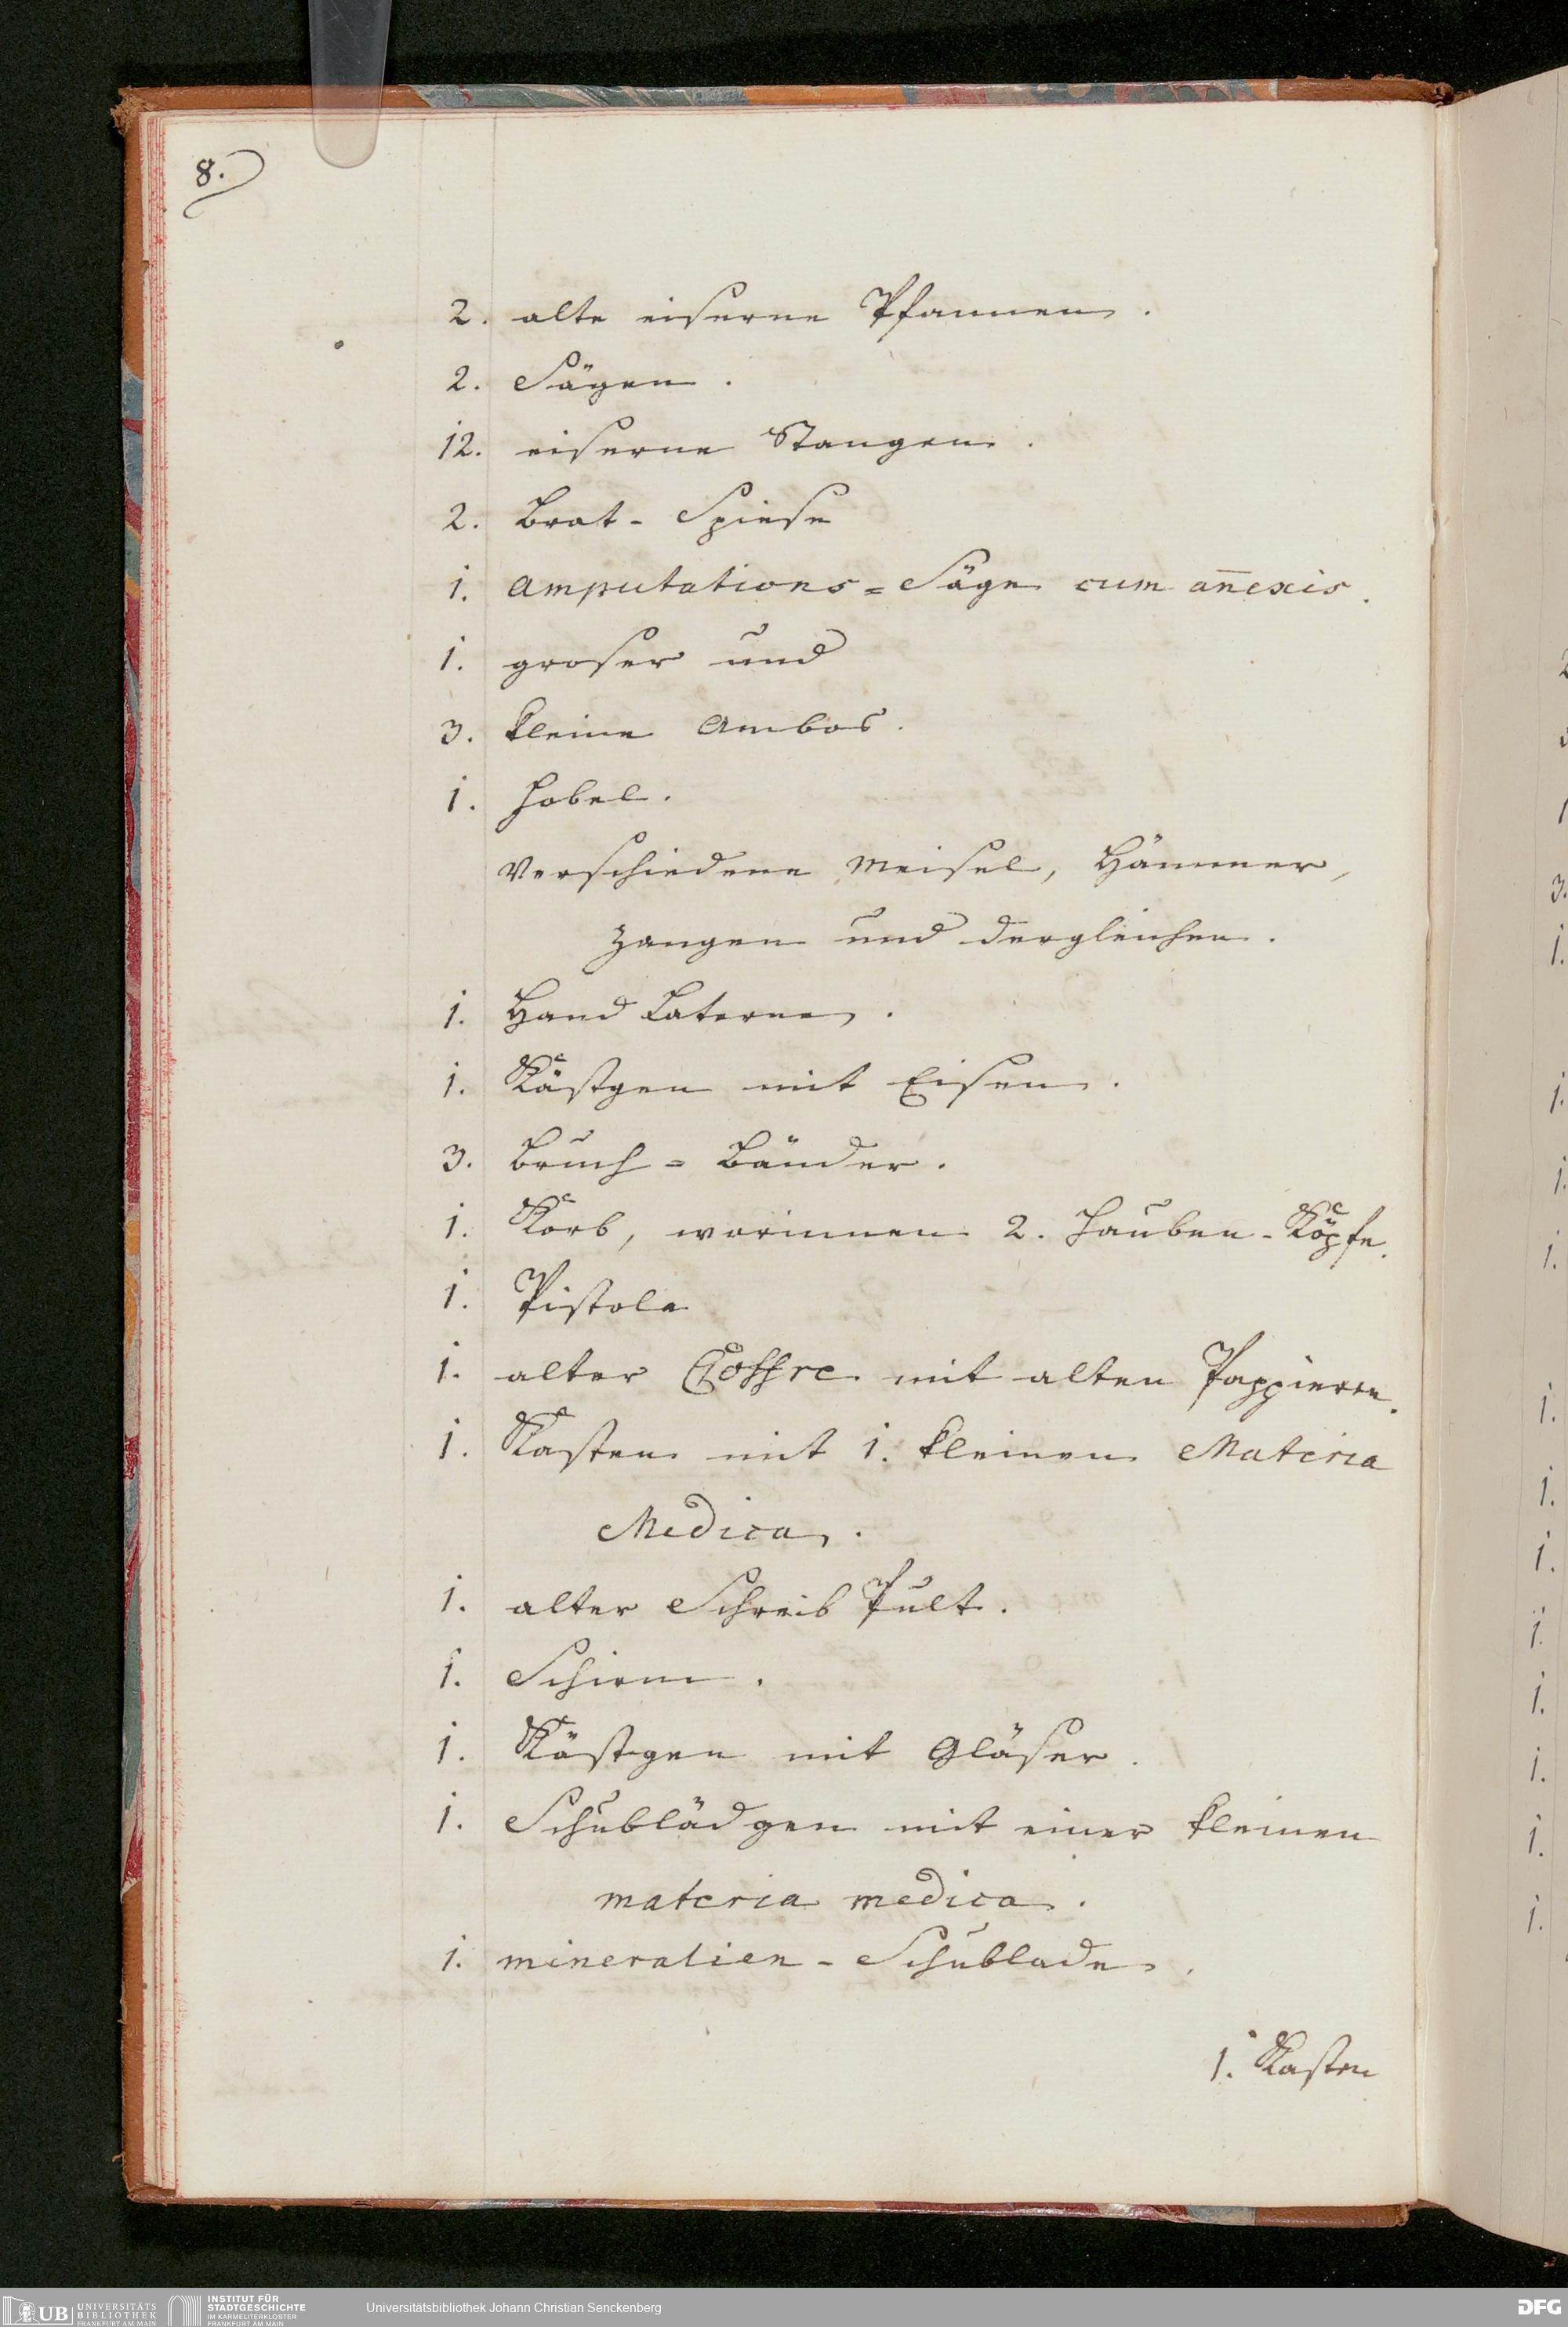 8.
2. alte eiserne Pfannen.
2. Sägen.
12. eiserne Stangen.
2. Brat- Spiese
1. Amputations= Säge cum an̄exis.
1. groser und
3. kleine Ambos.
1. Hobel.
Verschiedene Meisel, Hämmer,
Zangen und dergleichen.
1. Hand Laterne.
1. Kästgen mit Eisen.
3. Bruch= Bänder.
1. Korb, worinnen 2. Hauben-Köpfe.
1. Pistole
1. alter Coffre mit alten Pappieren.
1. Kasten mit 1. kleinen Materia
Medica.
1. alter Schreib Pult.
1. Schirm.
1. Kästgen mit Gläser.
1. Schublädgen mit einer kleinen
materia medica.
1. mineralien- Schublade.
1. Kasten
UB UNIVERSITÄTS
BIBLIOTHEK
FRANKFURT AM MAIN
INSTITUT FÜR
STADTGESCHICHTE
IM KARMELITERKLOSTER
FRANKFURT AM MAIN
Universitätsbibliothek Johann Christian Senckenberg
DFG